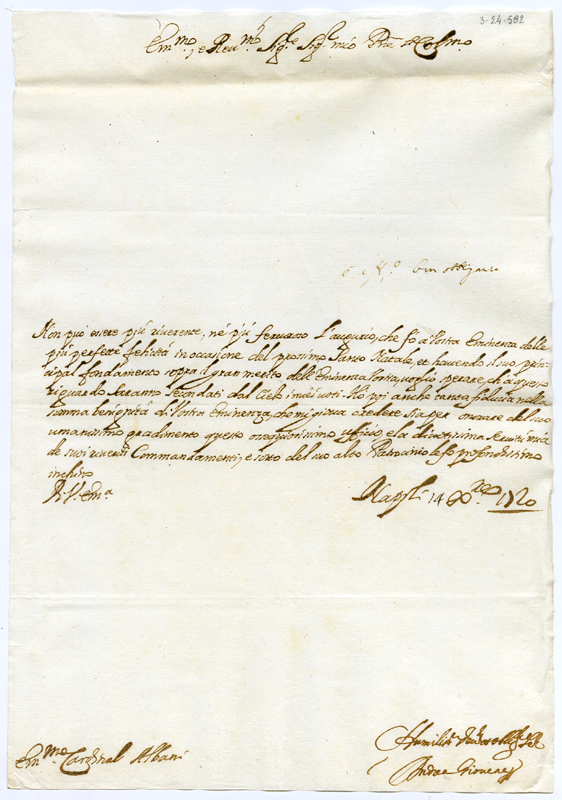 3-24-502
Em.mo, e Reu.mo Sig.re Sig.r mio P̃ne Col.mo
Non può essere più riuerente, nè più feruoroso l'augurio, che fò a Vostra Eminenza delle
più perfette felicità in occasione del prossimo Santo Natale, et hauendo il suo prin-
cipal fondamento sopra il gran merito dell'Eminenza Vostra, voglio sperare, ch'a questo
riguardo saranno secondati dal Cielo i miei voti. Ho poi anche tanta fiducia nella
somma benignità di Vostra Eminenza, che mi gioua credere sia per onorare del suo
umanissimo gradimento questo ossequiosissimo ufficio, e la diuotissima seruitù mia
de suoi riueriti Commandamenti, e sotto del suo alto Patrocinio le fò profondissimo
inchino
Di V. Em.a
Napoli 14 Xbre 1720
Em.mo Cardinal Albani
Humiliss. Deu.
Andrea Giouene